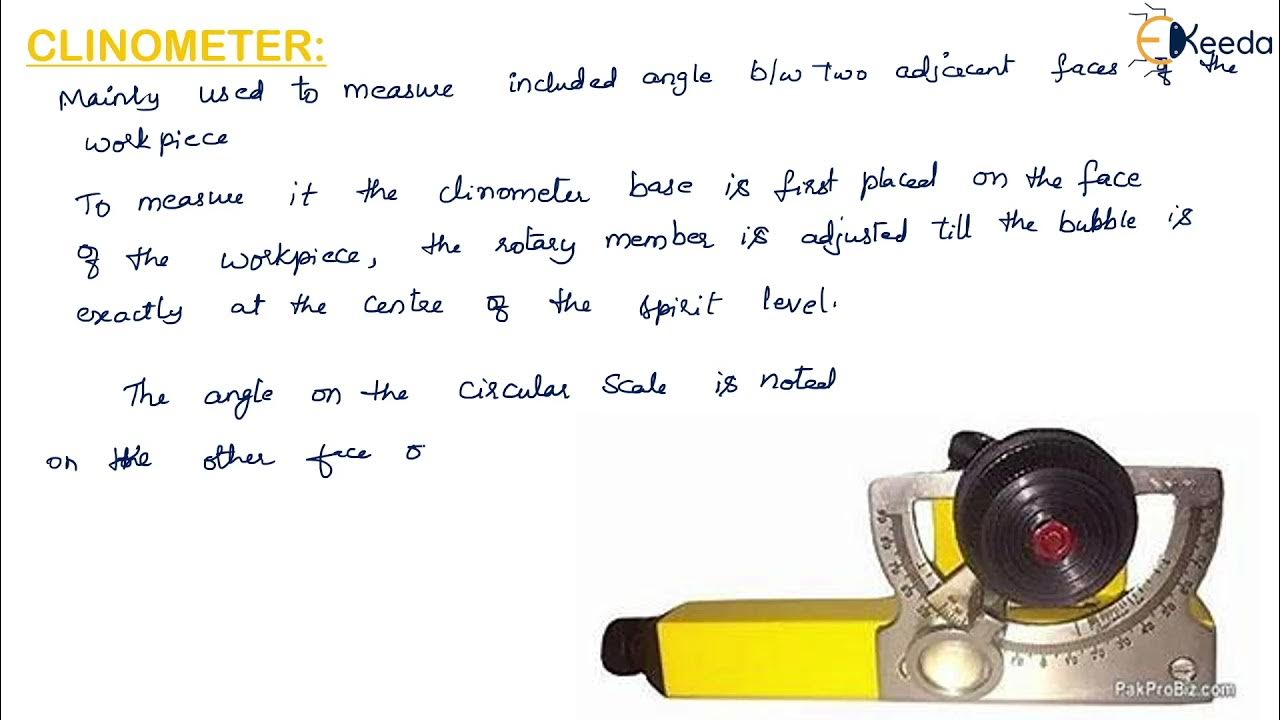 CLINOMETER:
EKeeda
Mainly used to measure included angle b/w Two adjacent faces of the
workpiece
To measure it the clinometer base is first placed on the face
of the workpiece, the rotary member is adjusted till the bubble is
exactly at the centre of the spirit level.
The angle on the circular scale is noted
on the other face o
PakProBiz.com